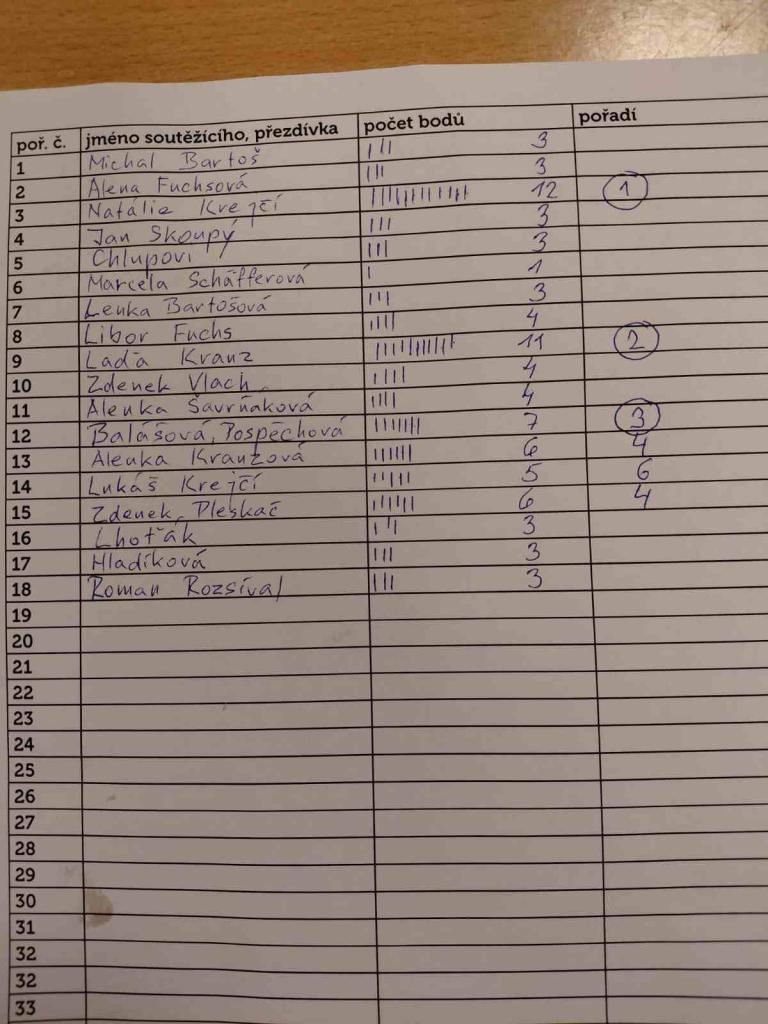 poř. č. jméno soutěžícího, přezdívka počet bodů pořadí
1 Michal Bartoš III 3
2 Alena Fuchsová III 3
3 Natálie Krejčí IIIIIIIIIIII 12 1
4 Jan Skoupý III 3
5 Chlupovi III 3
6 Marcela Schäfferová I 1
7 Lenka Bartošová III 3
8 Libor Fuchs IIII 4
9 Laďa Kranz IIIIIIIIIII 11 2
10 Zdenek Vlach IIII 4
11 Alenka Šavrňaková IIII 4
12 Balášová, Pospěchová IIIIIII 7 3
13 Alenka Kranzová IIIIII 6 4
14 Lukáš Krejčí IIIII 5 6
15 Zdenek Pleskač IIIIII 6 4
16 Lhoťák III 3
17 Hladíková III 3
18 Roman Rozsíval III 3
19
20
21
22
23
24
25
26
27
28
29
30
31
32
32
33